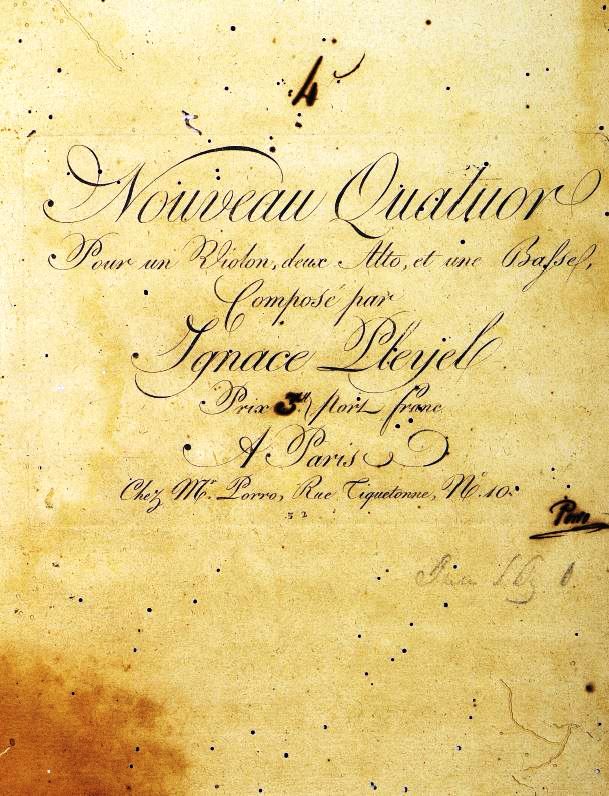 4
Nouveau Quatuor
Pour un Violon, deux Alto, et une Basse,
Composé par
Ignace Pleyel
Prix 3.tt port franc
A Paris
Chez Mr. Porro, Rue Tiquetonne, No. 10.
32